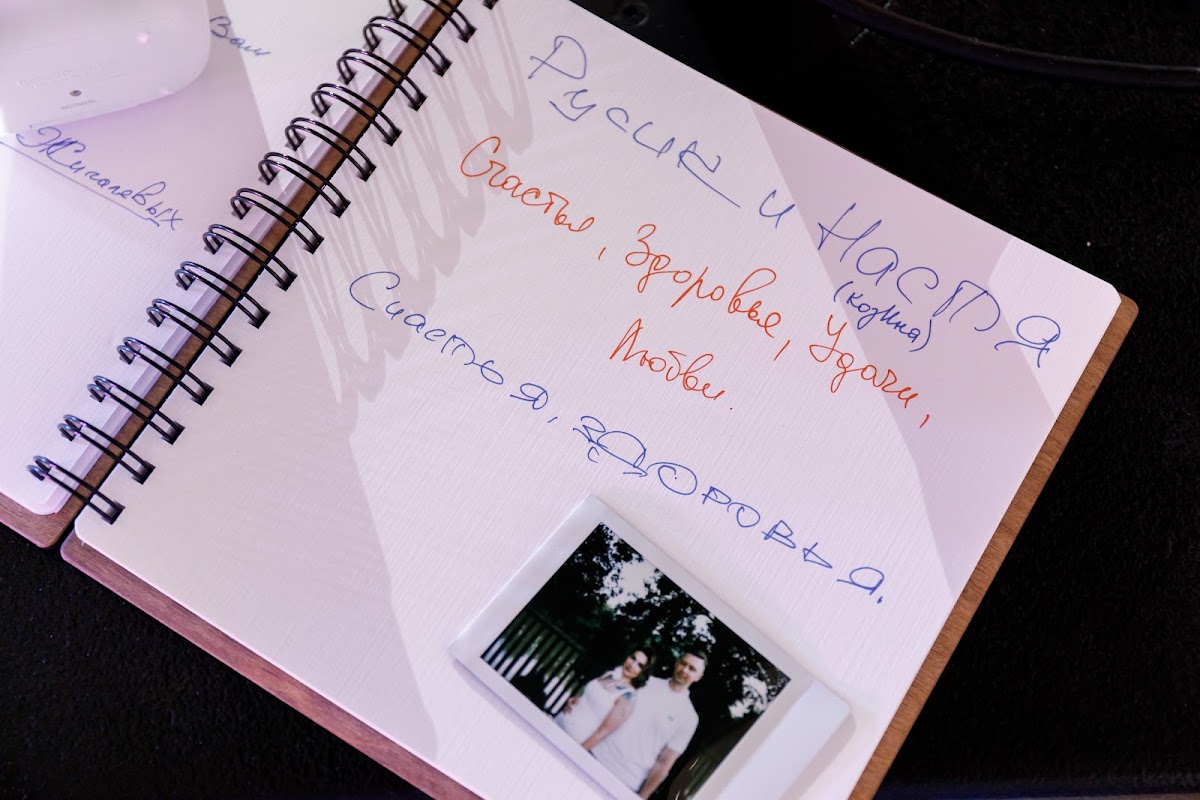 Вам
Жигалевых
Русик и Настя
(козина)
Счастья, Здоровья, Удачи,
Любви.
Счастья, здоровья.